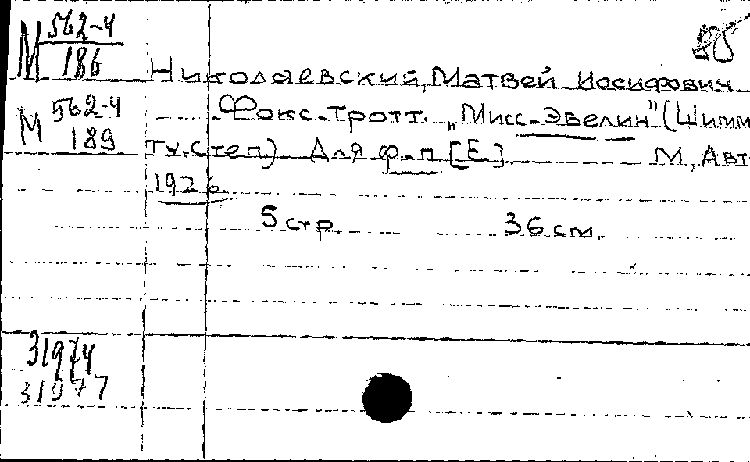 М 562-4
186
Николаевский, Матвей Иосифович
М 562-4
189
Фокс-тротт. „Мисс-Эвелин" (Шимм
ту.степ) Для ф-п [E] М, Авт
1926
5 стр. 36 см.
31974
31977